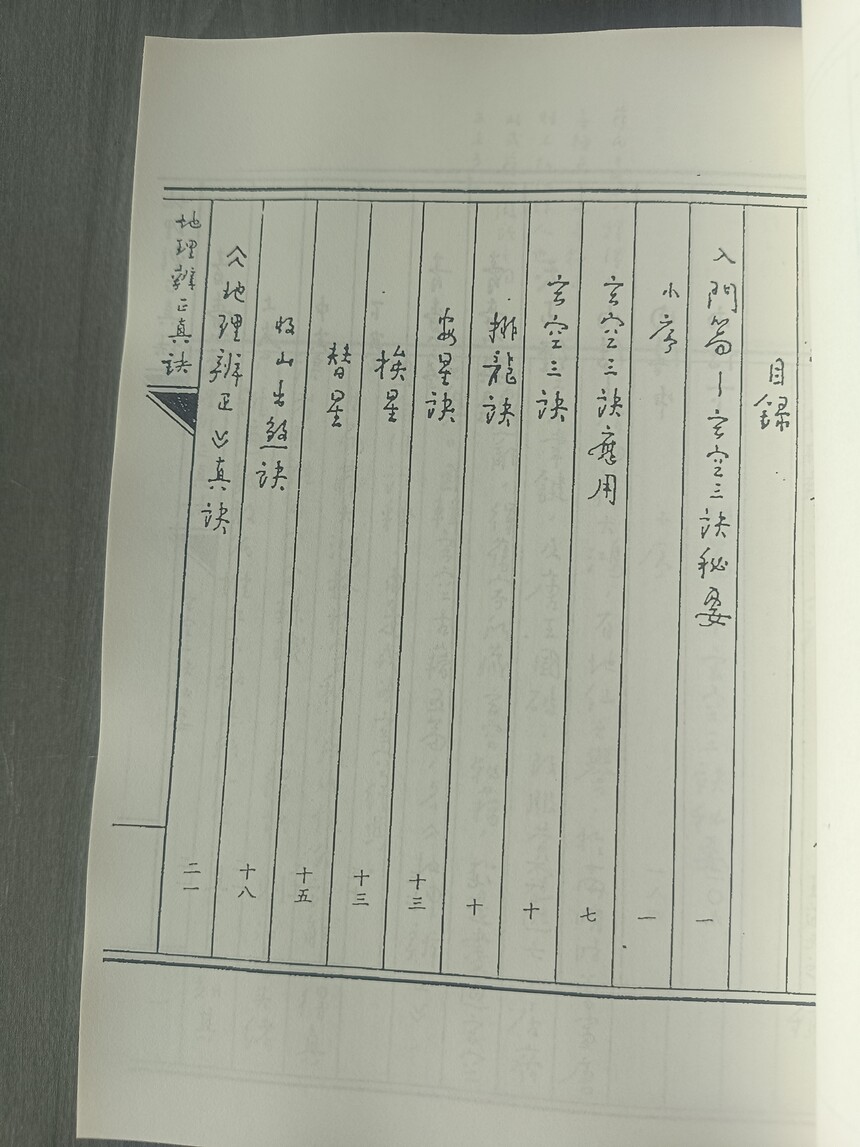 目録
入門篇－玄空三訣秘要 一
小序 一
玄空三訣應用 七
玄空三訣 十
排龍訣 十
安星訣 十三
挨星 十三
替星 十五
收山出煞訣 十八
《地理辨正》真訣 二一
地理辨正真訣